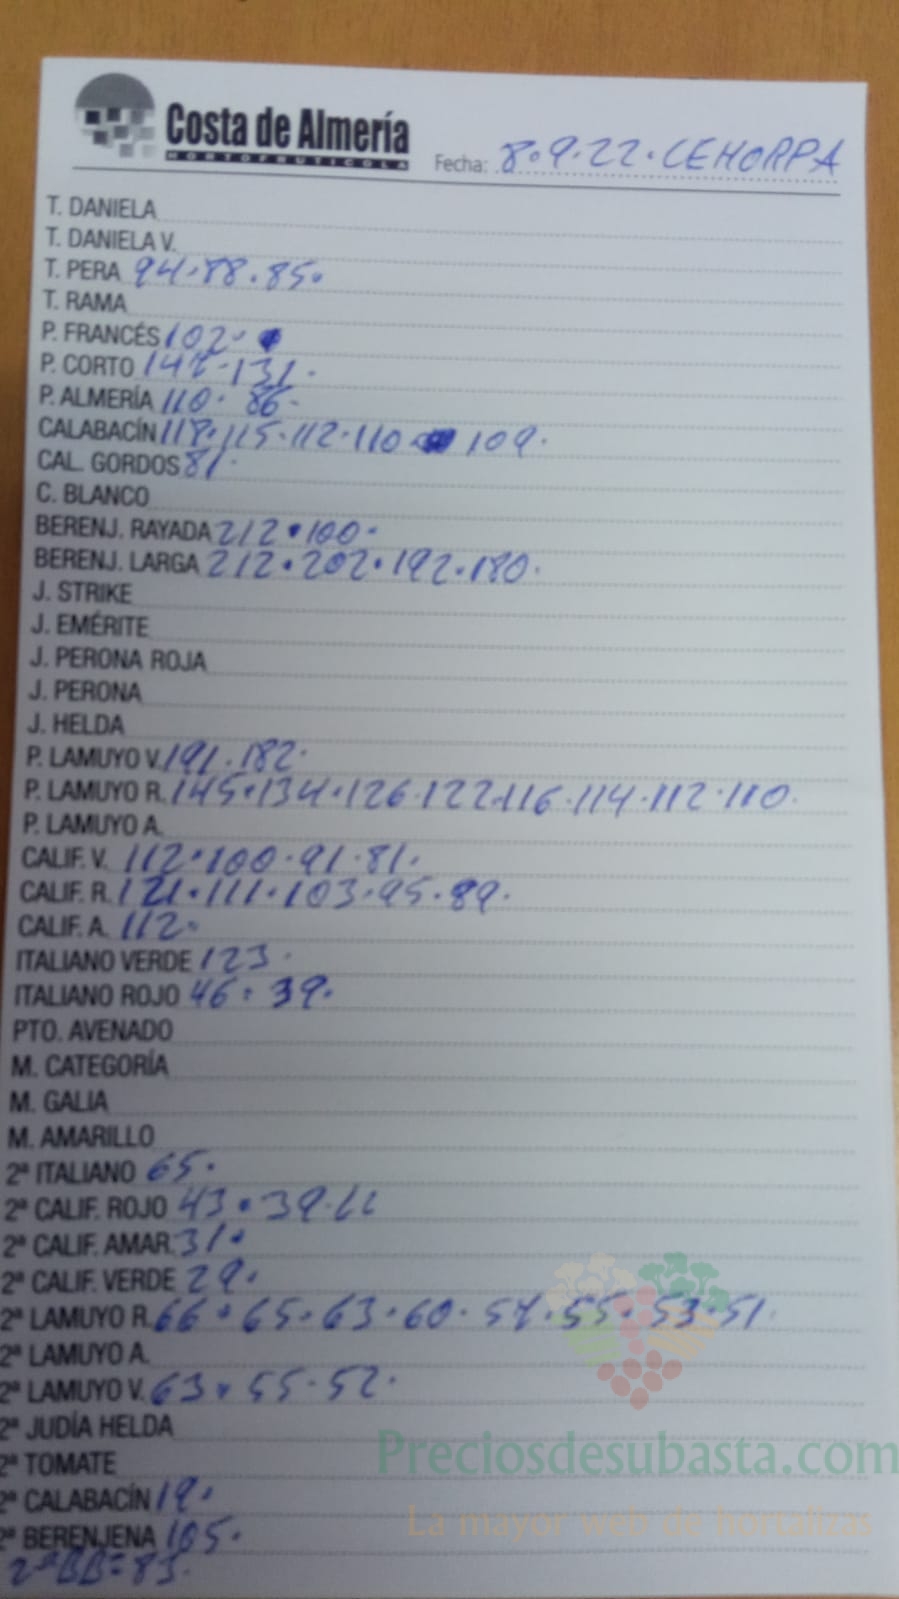 Costa de Almería
HORTOFRUTICOLA
Fecha: 8.9.22.CEHORPA
T. DANIELA
T. DANIELA V.
T. PERA 94.88.85.
T. RAMA
P. FRANCÉS 102.
P. CORTO 147.131.
P. ALMERÍA 110. 86.
CALABACÍN 118.115.112.110 109.
CAL. GORDOS 81.
C. BLANCO
BERENJ. RAYADA 212.100.
BERENJ. LARGA 212.202.192.180.
J. STRIKE
J. EMÉRITE
J. PERONA ROJA
J. PERONA
J. HELDA
P. LAMUYO V. 191.182.
P. LAMUYO R. 145.134.126.122.116.114.112.110.
P. LAMUYO A.
CALIF. V. 112.100.91.81.
CALIF. R. 121.111.103.95.89.
CALIF. A. 112.
ITALIANO VERDE 123.
ITALIANO ROJO 46. 39.
PTO. AVENADO
M. CATEGORÍA
M. GALIA
M. AMARILLO
2ª ITALIANO 65.
2ª CALIF. ROJO 43.39.
2ª CALIF. AMAR. 31.
2ª CALIF. VERDE 29.
2ª LAMUYO R. 66.65.63.60.57.55.53.51.
2ª LAMUYO A.
2ª LAMUYO V. 63.55.52.
2ª JUDÍA HELDA
2ª TOMATE
2ª CALABACÍN 19.
2ª BERENJENA 105.
2ªBB=83.
Preciosdesubasta.com
La mayor web de hortalizas